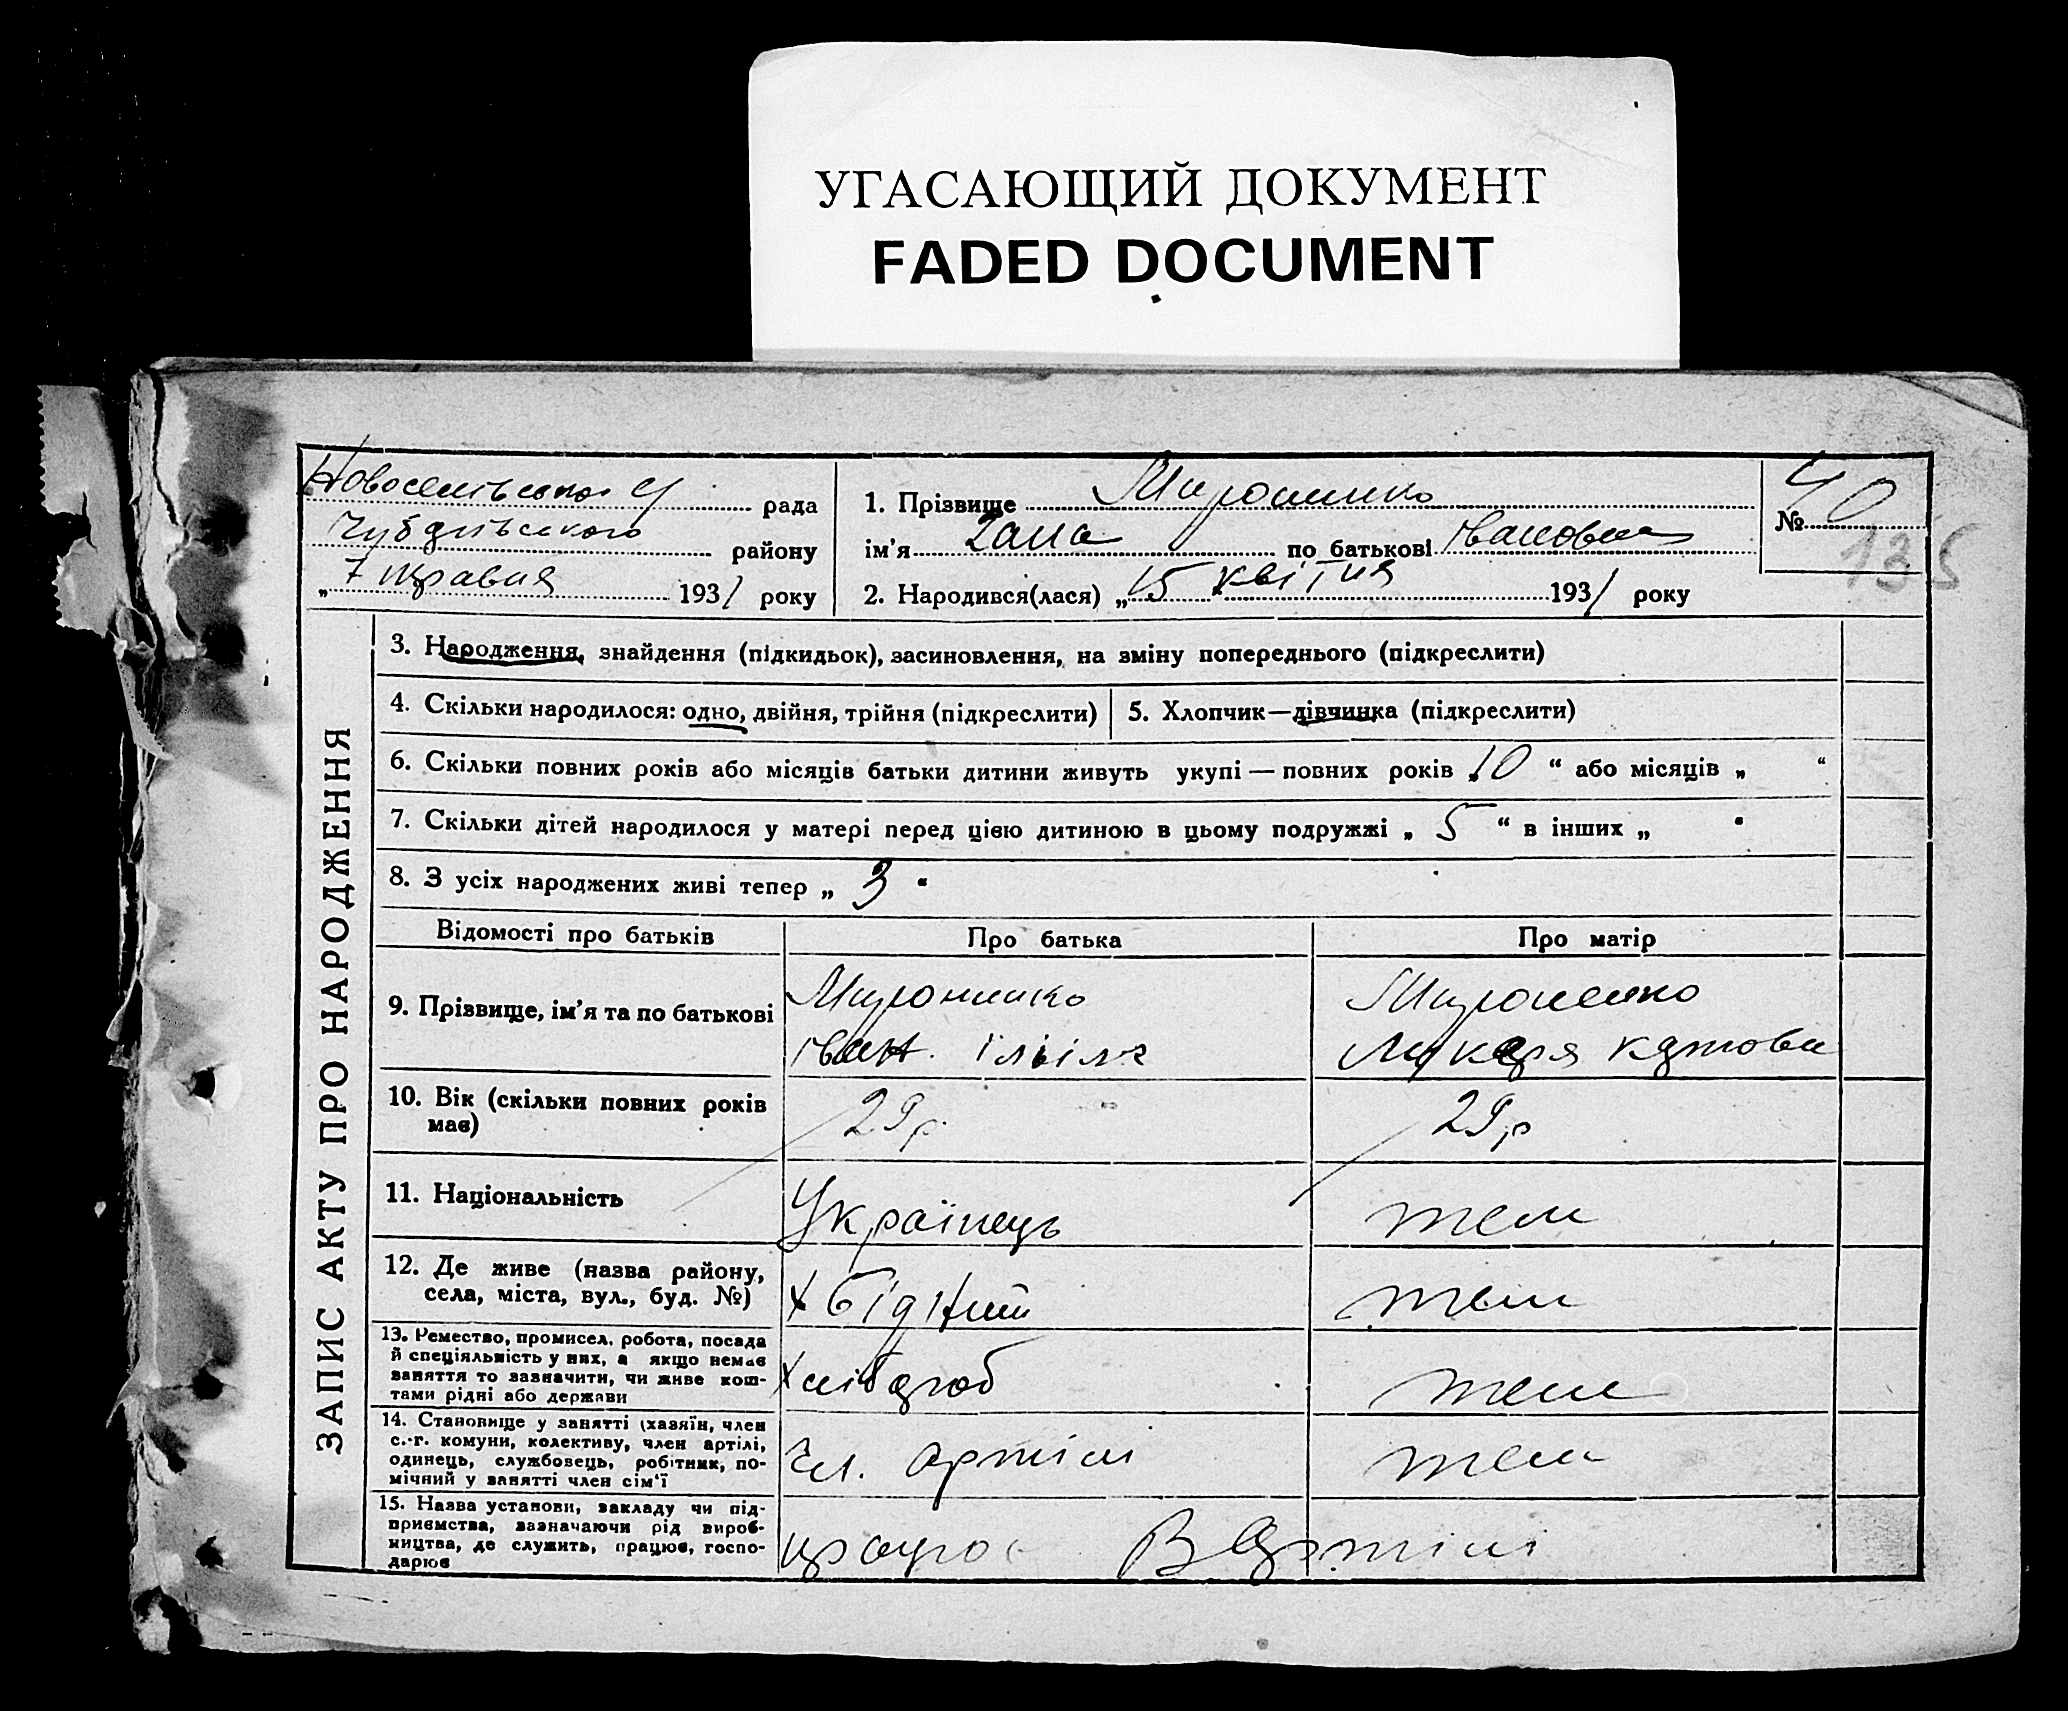 УГАСАЮЩИЙ ДОКУМЕНТ
FADED DOCUMENT
рада
району
„ 7 травня 1931 року
1. Прізвище Мироненко
ім’я по батькові Івановна
2. Народився(лася) „15 квітня 1931 року
№ 40
135
ЗАПИС АКТУ ПРО НАРОДЖЕННЯ
3. Народження, знайдення (підкидьок), засиновлення, на зміну попереднього (підкреслити)
4. Скільки народилося: одно, двійня, трійня (підкреслити)
5. Хлопчик—дівчинка (підкреслити)
6. Скільки повних років або місяців батьки дитини живуть укупі — повних років „10 “ або місяців „ “
7. Скільки дітей народилося у матері перед цією дитиною в цьому подружжі „ 5 “ в інших „ “
8. З усіх народжених живі тепер „ 3 “
Відомості про батьків
Про батька
Про матір
9. Прізвище, ім’я та по батькові
Мироненко
Іван
Мироненко
10. Вік (скільки повних років
має)
29р.
29р
11. Національність
Українець
теж
12. Де живе (назва району,
села, міста, вул., буд. №)
х Бідний
теж
13. Ремество, промисел, робота, посада
й спеціяльність у них, а якщо немає
заняття то зазначити, чи живе кош-
тами рідні або держави
хлібороб
теж
14. Становище у занятті (хазяїн, член
с.-г. комуни, колективу, член артілі,
одинець, службовець, робітник, по-
мічний у занятті член сім‘ї
чл. артілі
теж
15. Назва установи, закладу чи під-
приємства, зазначаючи рід вироб-
ництва, де служить, працює, госпо-
дарює
працює В Артілі